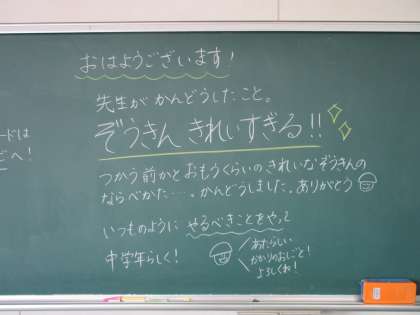 おはようございます!
先生が かんどうしたこと。
ぞうきん きれいすぎる!!
つかう前かと おもうくらいの きれいな ぞうきんの
ならべかた…。かんどうしました。ありがとう
いつものように やるべきことをやって
中学年らしく!
あたらしい
かかりのおしごと!
よろしくね!
ードは
へ!